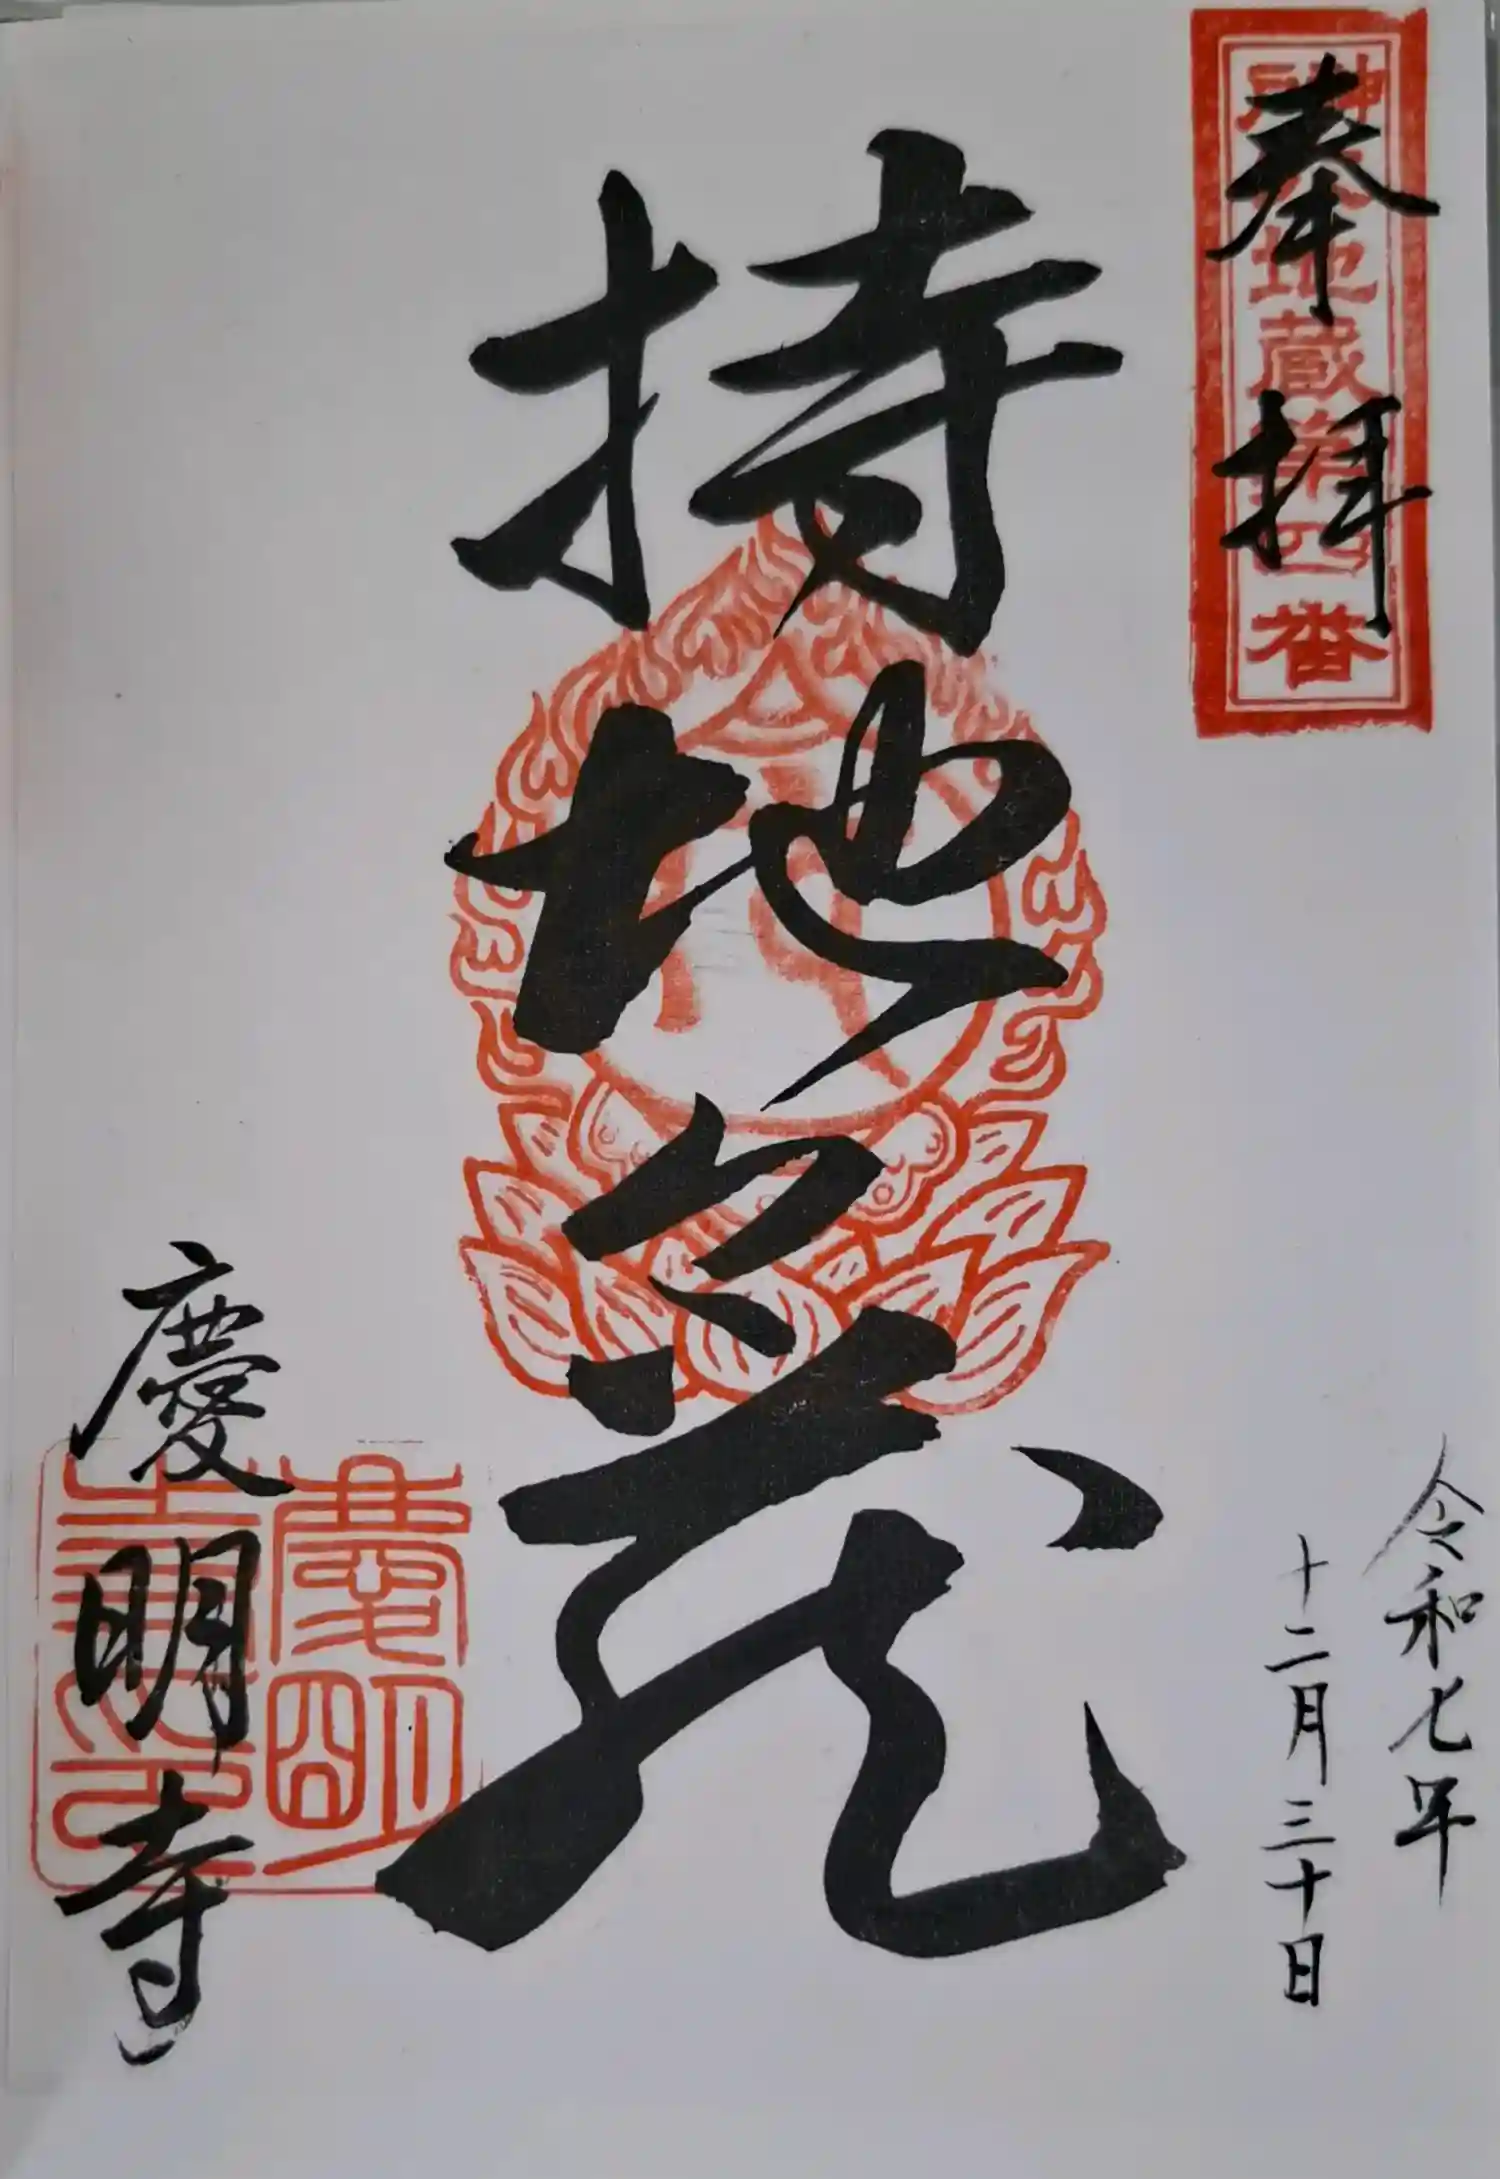 奉拝
地蔵第四番
令和七年
十二月三十日
持地々蔵
慶明寺
慶明